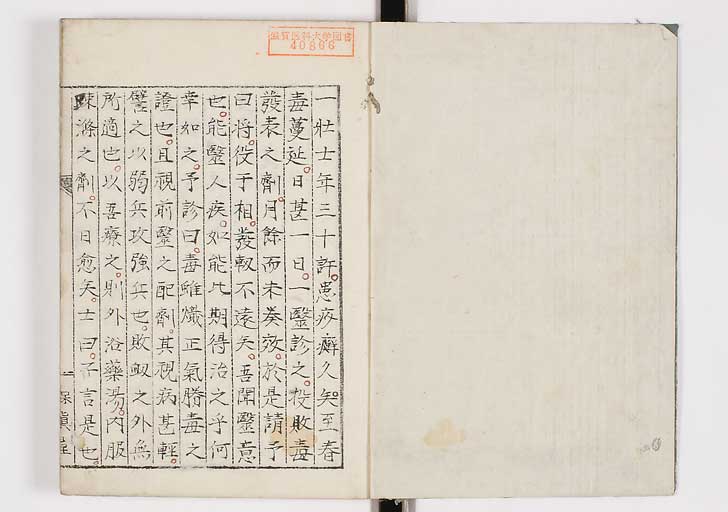 滋賀医科大学図書
40806
一壯士年三十許患疥癬久矣至春
毒蔓延日甚一日一醫診之投敗毒
發表之劑月餘而未奏效於是請予
曰將役于相發軔不遠矣吾聞醫意
也能醫人疾如能此期得治之乎何
幸如之予診曰毒雖熾正氣勝毒之
證也且視前醫之配劑其視病甚輕
譬之以弱兵攻強兵也敗衂之外無
所適也以吾療之則外浴藥湯內服
疎滌之劑不日愈矣士曰子言是也